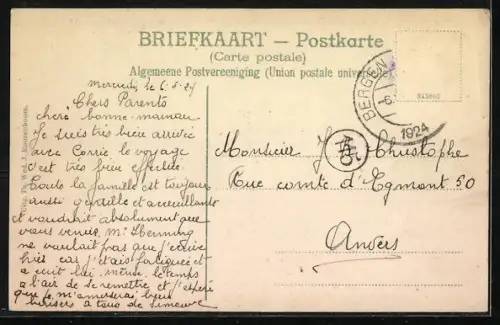 BRIEFKAART — Postkarte
(Carte postale)
Algemeene Postvereeniging (Union postale universelle)
BERGEN
1924
Mercredi le 6.8.24
Chers Parents
chère bonne-maman
Je suis très bien arrivée
avec Corrie le voyage
s'est très bien effectué
Toute la famille est toujours
aussi gentille et accueillante
et voudrait absolument que
vous veniez. Mr Henning
ne voulait pas que j'écrive
hier car j'étais fatiguée et
a écrit lui-même. le temps
a l'air de se remettre et j'espère
que je m'amuserai bien
baisers à tous de Simone
Monsieur J. Christophe
Rue comte d'Egmont 50
Anvers